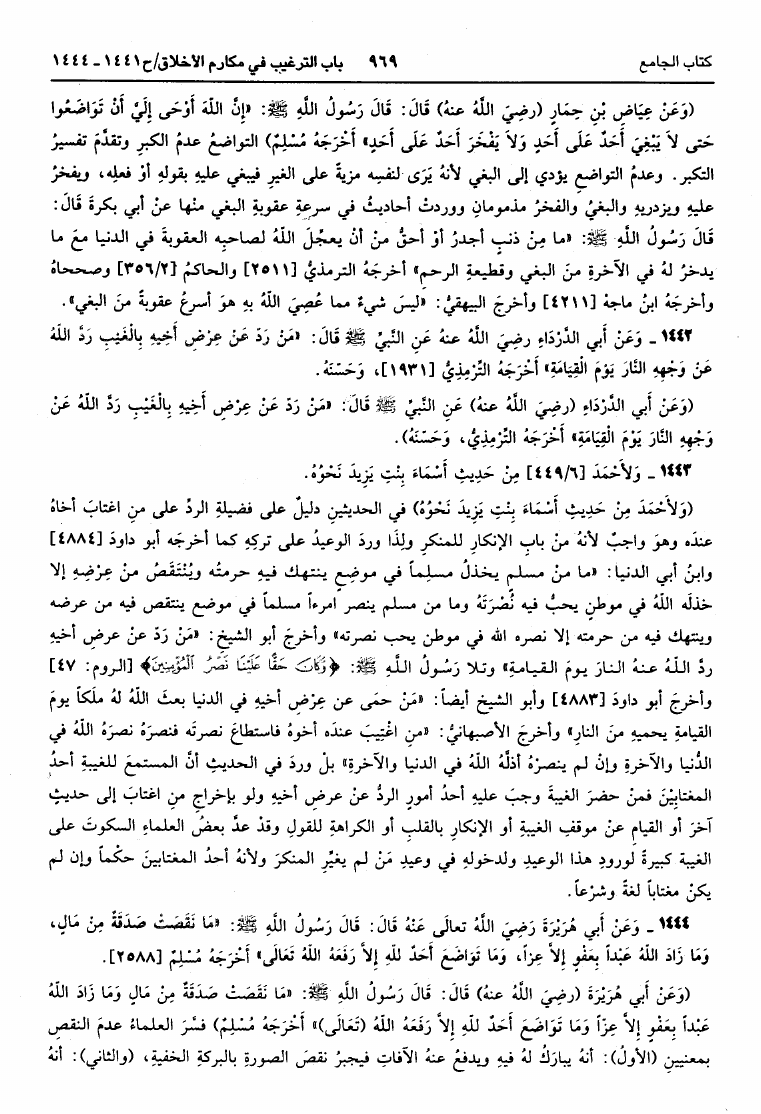 كتاب الجامع ٩٦٩ باب الترغيب في مكارم الأخلاق/ح١٤٤١ - ١٤٤٤
(وَعَنْ عِيَاضِ بْنِ حِمَارٍ (رضِيَ اللَّهُ عنهُ) قَالَ: قَالَ رَسُولُ اللَّهِ ﷺ: «إِنَّ اللَّهَ أَوْحَى إِلَيَّ أَنْ تَوَاضَعُوا
حَتى لاَ يَبْغِيَ أَحَدٌ عَلَى أَحَدٍ وَلاَ يَفْخَرَ أَحَدٌ عَلَى أَحَدٍ» أَخْرَجَهُ مُسْلِمٌ) التواضعُ عدمُ الكبرِ وتقدَّمَ تفسيرُ
التكبر. وعدمُ التواضعِ يؤدي إلى البغي لأنهُ يَرَى لنفسِه مزيةً على الغيرِ فيبغي عليهِ بقولِهِ أوْ فعلِه، ويفخرُ
عليهِ ويزدريهِ والبغيُ والفخرُ مذمومانِ ووردتْ أحاديثُ في سرعةِ عقوبةِ البغي منْها عنْ أبي بكرةَ قَالَ:
قَالَ رَسُولُ اللَّهِ ﷺ: «ما مِنْ ذنبٍ أجدرُ أوْ أحقُّ منْ أنْ يعجِّلَ اللَّهُ لصاحبِه العقوبةَ في الدنيا معَ ما
يدخرُ لهُ في الآخرةِ منَ البغي وقطيعةِ الرحمِ» أخرجَهُ الترمذيُّ [٢٥١١] والحاكمُ [٣٥٦/٢] وصححاهُ
وأخرجَهُ ابنُ ماجهْ [٤٢١١] وأخرجَ البيهقيُّ: «ليسَ شيءٌ مما عُصِيَ اللَّهُ بهِ هوَ أسرعُ عقوبةً منَ البغي».
١٤٤٢ - وَعَنْ أَبي الدَّرْدَاءِ رضِيَ اللَّهُ عنهُ عَنِ النَّبيِّ ﷺ قَالَ: «مَنْ رَدَّ عَنْ عِرْضِ أَخِيهِ بِالْغَيْبِ رَدَّ اللَّهُ
عَنْ وَجْهِهِ النَّارَ يَوْمَ الْقِيَامَةِ» أَخْرَجَهُ التِّرْمِذِيُّ [١٩٣١]، وَحَسَّنَهُ.
(وَعَنْ أَبي الدَّرْدَاءِ (رضِيَ اللَّهُ عنهُ) عَنِ النَّبيِّ ﷺ قَالَ: «مَنْ رَدَّ عَنْ عِرْضِ أَخِيهِ بِالْغَيْبِ رَدَّ اللَّهُ عَنْ
وَجْهِهِ النَّارَ يَوْمَ الْقِيَامَةِ» أَخْرَجَهُ التِّرْمِذِيُّ، وَحَسَّنَهُ).
١٤٤٣ - وَلأَحْمَدَ [٤٤٩/٦] مِنْ حَدِيثِ أَسْمَاءَ بِنْتِ يَزِيدَ نَحْوُهُ.
(وَلأَحْمَدَ مِنْ حَدِيثِ أَسْمَاءَ بِنْتِ يَزِيدَ نَحْوُهُ) في الحديثينِ دليلٌ على فضيلةِ الردِّ على منِ اغتابَ أخاهُ
عندَه وهوَ واجبٌ لأنهُ منْ بابِ الإنكارِ للمنكرِ ولِذَا وردَ الوعيدُ على تركِه كما أخرجَه أبو داودَ [٤٨٨٤]
وابنُ أبي الدنيا: «ما منْ مسلمٍ يخذلُ مسلِماً في موضعٍ ينتهكُ فيهِ حرمتُه ويُنْتَقَصُ منْ عِرْضِهِ إلا
خذلَه اللَّهُ في موطنٍ يحبُّ فيه نُصْرَتَهُ وما من مسلم ينصر امرءاً مسلماً في موضع ينتقص فيه من عرضه
وينتهك فيه من حرمته إلا نصره الله في موطن يحب نصرته» وأخرجَ أبو الشيخِ: «مَنْ ردَّ عنْ عرضِ أخيهِ
ردَّ اللَّهُ عنهُ النارَ يومَ القيامةِ» وتلا رَسُولُ اللَّهِ ﷺ: ﴿وَكَانَ حَقًّا عَلَيْنَا نَصْرُ الْمُؤْمِنِينَ﴾ [الروم: ٤٧]
وأخرجَ أبو داودَ [٤٨٨٣] وأبو الشيخِ أيضاً: «مَنْ حمَى عن عِرْضِ أخيهِ في الدنيا بعثَ اللَّهُ لهُ ملَكاً يومَ
القيامةِ يحميهِ منَ النارِ» وأخرجَ الأصبهانيُّ: «منِ اغْتِيبَ عندَه أخوهُ فاستطاعَ نصرتَه فنصرَهُ نصرَهُ اللَّهُ في
الدُّنيا والآخرةِ وإنْ لم ينصرْهُ أذلَّهُ اللَّهُ في الدنيا والآخرةِ» بلْ وردَ في الحديثِ أنَّ المستمعَ للغيبةِ أحدُ
المغتابَيْنِ فمنْ حضرَ الغيبةَ وجبَ عليهِ أحدُ أمورٍ الردُّ عنْ عرضِ أخيهِ ولو بإخراجِ منِ اغتابَ إلى حديثٍ
آخرَ أو القيامِ عنْ موقفِ الغيبةِ أو الإنكارِ بالقلبِ أو الكراهةِ للقولِ وقدْ عدَّ بعضُ العلماءِ السكوتَ على
الغيبةِ كبيرةً لورودِ هذا الوعيدِ ولدخولِهِ في وعيدِ مَنْ لم يغيِّرِ المنكرَ ولأنهُ أحدُ المغتابينَ حكْماً وإن لم
يكنْ مغتاباً لغةً وشرْعاً.
١٤٤٤ - وَعَنْ أَبي هُرَيْرَةَ رَضِيَ اللَّهُ تعالَى عَنْهُ قَالَ: قَالَ رَسُولُ اللَّهِ ﷺ: «مَا نَقَصَتْ صَدَقَةٌ مِنْ مَالٍ،
وَمَا زَادَ اللَّهُ عَبْداً بِعَفْوٍ إِلاَّ عِزاً، وَمَا تَوَاضَعَ أَحَدٌ للَّهِ إِلاَّ رَفَعَهُ اللَّهُ تَعَالَى» أَخْرَجَهُ مُسْلِمٌ [٢٥٨٨].
(وَعَنْ أَبي هُرَيْرَةَ (رضِيَ اللَّهُ عنهُ) قَالَ: قَالَ رَسُولُ اللَّهِ ﷺ: «مَا نَقَصَتْ صَدَقَةٌ مِنْ مَالٍ وَمَا زَادَ اللَّهُ
عَبْداً بِعَفْوٍ إِلاَّ عِزّاً وَمَا تَوَاضَعَ أَحَدٌ للَّهِ إِلاَّ رَفَعَهُ اللَّهُ (تَعَالَى)» أَخْرَجَهُ مُسْلِمٌ) فسَّرَ العلماءُ عدمَ النقصِ
بمعنيينِ (الأولُ): أنهُ يباركُ لهُ فيهِ ويدفعُ عنهُ الآفاتِ فيجبرُ نقصَ الصورةِ بالبركةِ الخفيةِ، (والثاني): أنهُ